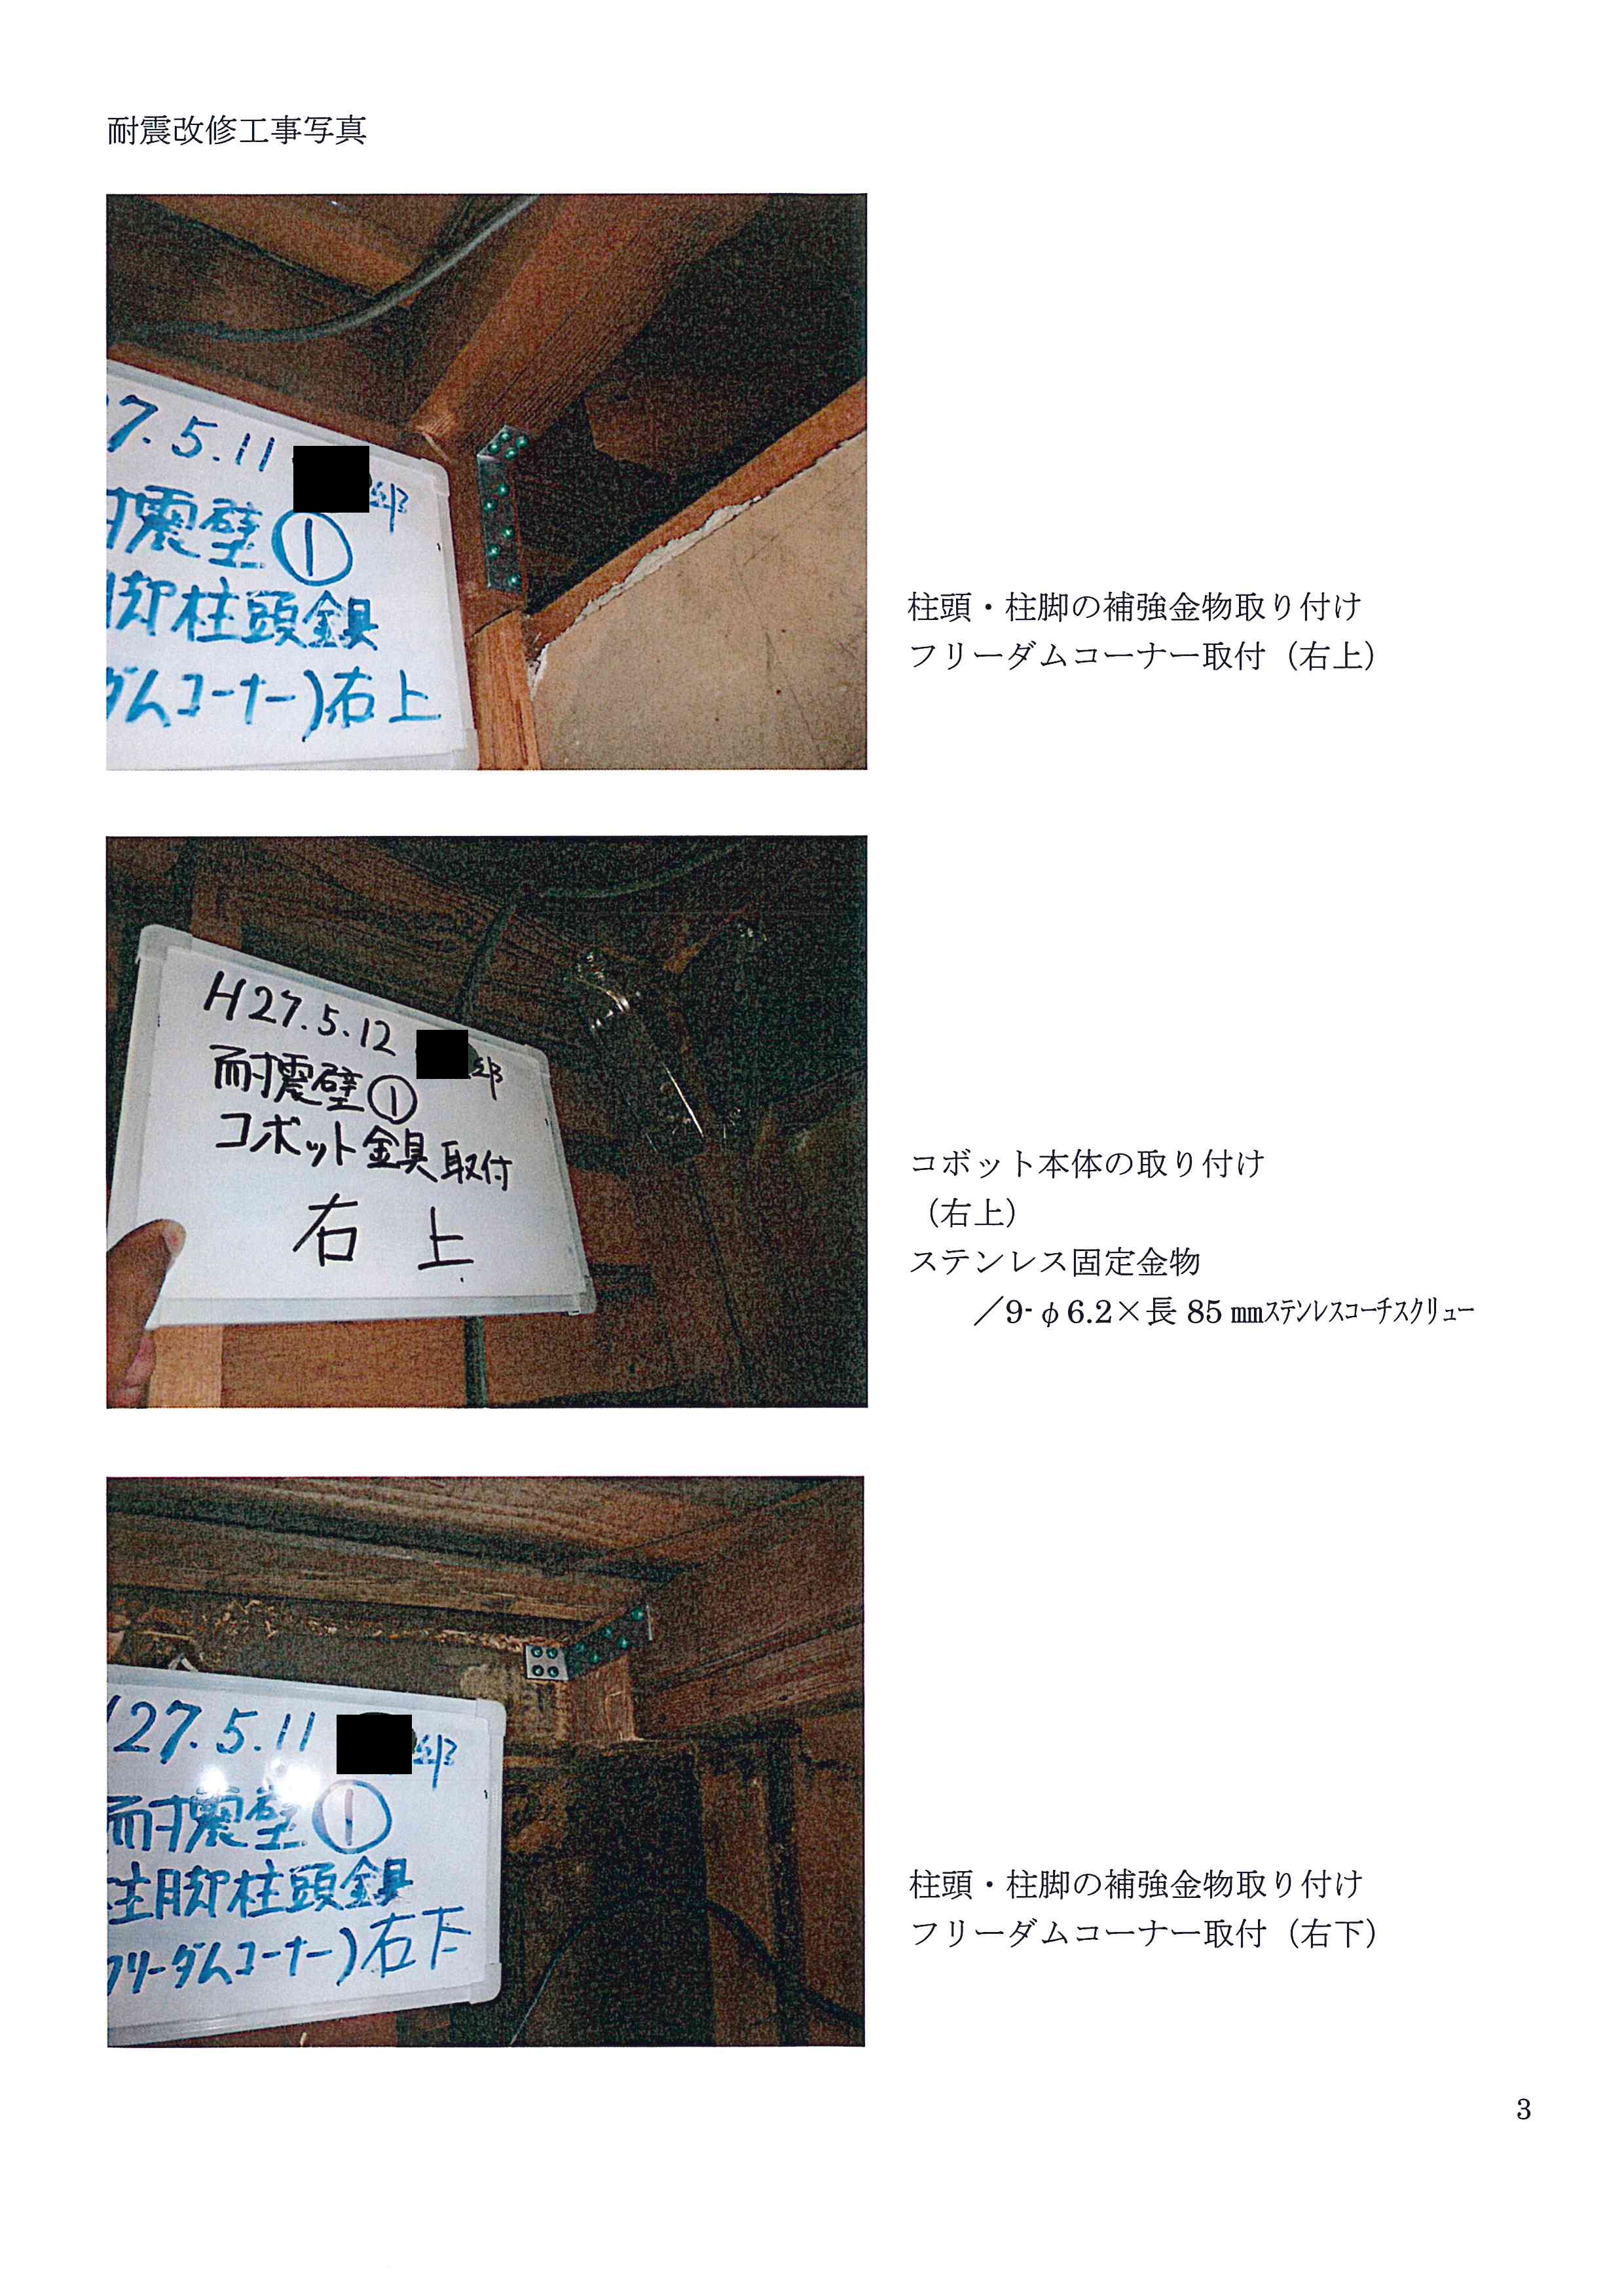 耐震改修工事写真
7.5.11 邸
耐震壁①
脚柱頭金具
ダムコーナー)右上
柱頭・柱脚の補強金物取り付け
フリーダムコーナー取付（右上）
H27.5.12 邸
耐震壁①
コボット金具取付
右上
コボット本体の取り付け
（右上）
ステンレス固定金物
／9-φ6.2×長85㎜ｽﾃﾝﾚｽｺｰﾁｽｸﾘｭｰ
27.5.11 邸
耐震壁①
柱脚柱頭金具
フリーダムコーナー)右下
柱頭・柱脚の補強金物取り付け
フリーダムコーナー取付（右下）
3